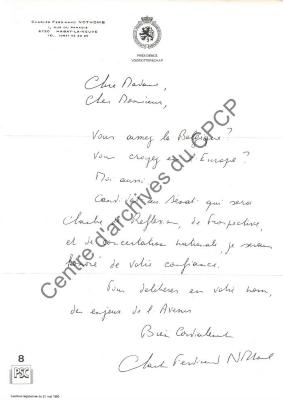 CHARLES FERDINAND NOTHOMB
1, RUE DU PARADIS
6720 - HABAY-LA-NEUVE
PRÉSIDENCE
VOORZITTERSCHAP
Chère Madame,
Cher Monsieur,
Vous aimez la Belgique ?
Vous croyez en l'Europe ?
Moi aussi.
Candidat au Sénat qui sera
Chambre de réflexion, de Prospective,
et de concertation nationale, je serais
honoré de votre confiance.
Pour délibérer en votre nom,
des enjeux de l'Avenir
Bien Cordialement
Charles Ferdinand Nothomb
8
PSC
Elections législatives du 21 mai 1995
Centre d'archives du CPCP